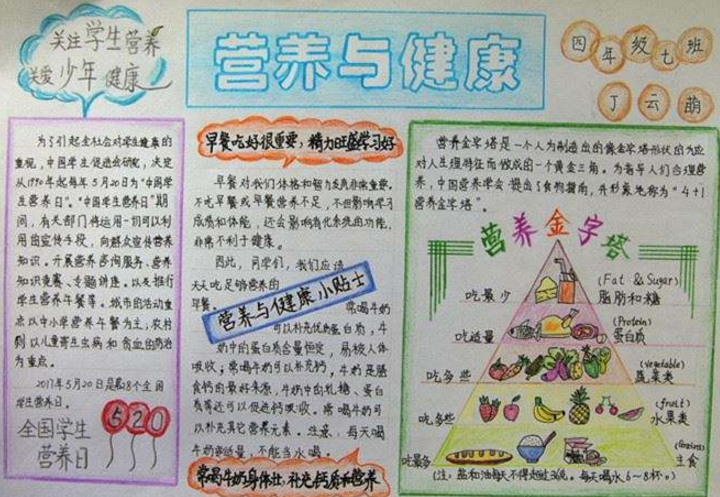 关注学生营养
关爱少年健康
营养与健康
四年级七班
丁云萌
为了引起全社会对学生健康的
重视，中国学生促进会研究，决定
从1990年起每年5月20日为"中国学
生营养日"。"中国学生营养日"期
间，有关部门将运用一切可以利
用的宣传手段，向群众宣传营养
知识。开展营养咨询服务、营养
知识竞赛、专题讲座。以及推行
学生营养午餐等。城市的活动重
点以中小学营养午餐为主，农村
则以儿童寄生虫病和贫血的防治
为重点。
2017年5月20日是第28个全国
学生营养日。
全国学生
营养日
520
早餐吃好很重要，精力旺盛学习好
早餐对我们体格和智力发育非常重要。
不吃早餐或早餐营养不足，不但影响学习
成绩和体能，还会影响消化系统的功能，
非常不利于健康。
因此，同学们，我们应该
天天吃足够营养的
早餐。
营养与健康小贴士
常喝牛奶
可以补充优质蛋白质，牛
奶中的蛋白质含量恒定，易被人体
吸收；常喝牛奶可以补充钙，牛奶是膳
食钙的最好来源，牛奶中的乳糖、蛋白
质等还可以促进钙吸收。常喝牛奶可
以补充其它营养元素。注意，每天喝
牛奶要适量，不能当水喝。
常喝牛奶身体壮，补充钙质和营养
营养金字塔是一个人为制造出的像金字塔形状的为应
对人生理特征而做成的一个黄金三角。为指导人们合理营
养，中国营养学会提出了食物指南，并形象地称为"4+1
营养金字塔"。
营养金字塔
吃最少
(Fat & Sugar)
脂肪和糖
吃适量
(Protein)
蛋白质
吃多些
(vegetable)
蔬菜类
吃多些
(fruit)
水果类
吃最多
(Grains)
主食
(注：盐和油每天不得超过3克。每天喝水6～8杯。)